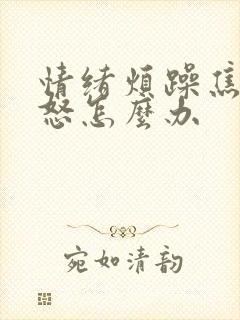 情绪烦躁焦
怒怎麽办
宛如清韵